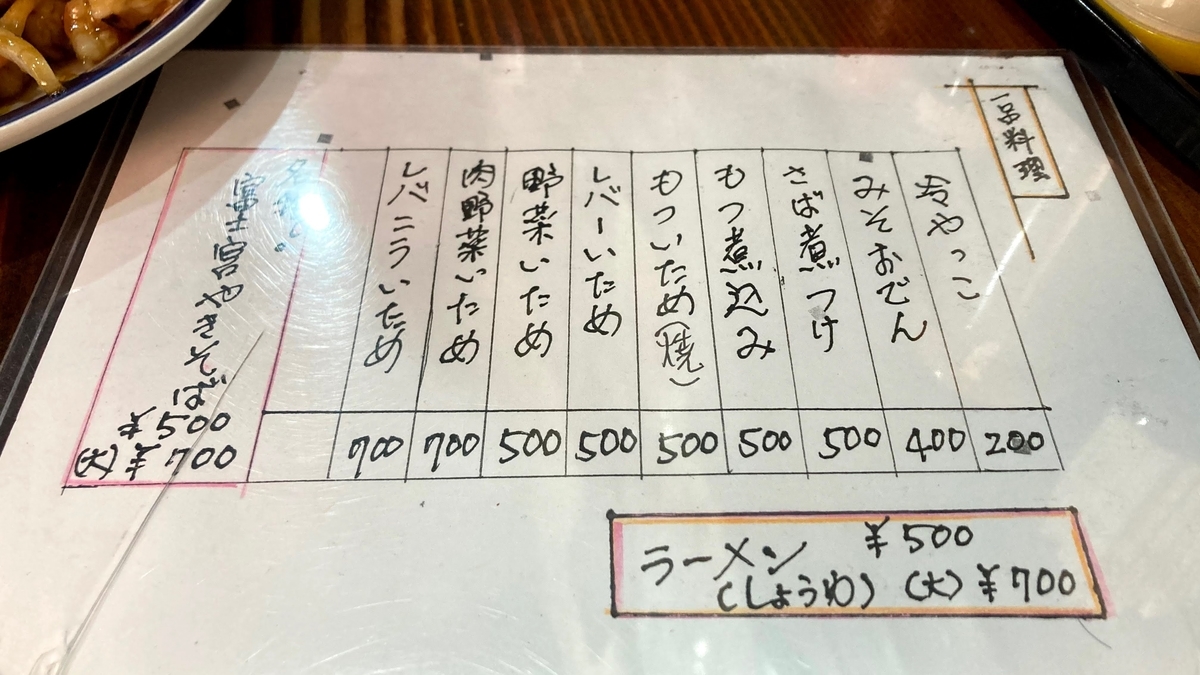 一品料理
冷やっこ 200
みそおでん 400
さば煮つけ 500
もつ煮込み 500
もついため(焼) 500
レバーいため 500
野菜いため 500
肉野菜いため 700
レバニラいため 700
富士宮やきそば
¥500
(大)¥700
ラーメン ¥500
(しょうゆ) (大)¥700